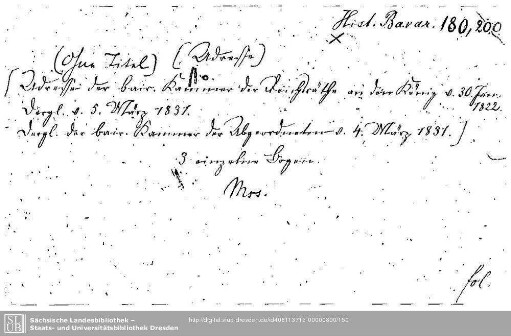 Hist. Bavar. 180,200
(Ohne Titel) (Adresse)
[Adresse der bair. Kammer der Reichsräthe an den König v. 30. Jan. 1822.
Dergl. v. 5. März 1831.
Dergl. der bair. Kammer der Abgeordneten v. 4. März 1831.]
3 einzelne Bogen.
Mss.
fol.
Sächsische Landesbibliothek –
Staats- und Universitätsbibliothek Dresden